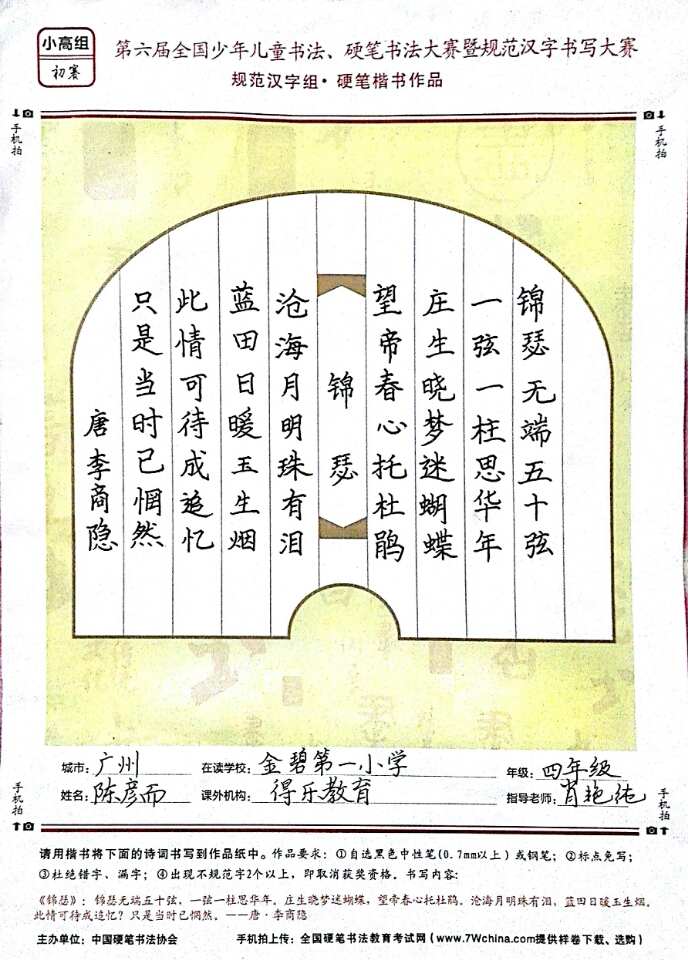 小高组
初赛
第六届全国少年儿童书法、硬笔书法大赛暨规范汉字书写大赛
规范汉字组·硬笔楷书作品
手机拍
手机拍
锦瑟无端五十弦
一弦一柱思华年
庄生晓梦迷蝴蝶
望帝春心托杜鹃
锦瑟
沧海月明珠有泪
蓝田日暖玉生烟
此情可待成追忆
只是当时已惘然
唐李商隐
城市：广州 在读学校：金碧第一小学 年级：四年级
姓名：陈彦而 课外机构：得乐教育 指导老师：肖艳纯
手机拍
手机拍
请用楷书将下面的诗词书写到作品纸中。作品要求：①自选黑色中性笔(0.7mm以上)或钢笔；②标点免写；
③杜绝错字、漏字；④出现不规范字2个以上，即取消获奖资格。书写内容：
《锦瑟》：锦瑟无端五十弦，一弦一柱思华年。庄生晓梦迷蝴蝶，望帝春心托杜鹃。沧海月明珠有泪，蓝田日暖玉生烟。
此情可待成追忆？只是当时已惘然。——唐·李商隐
主办单位：中国硬笔书法协会 手机拍上传：全国硬笔书法教育考试网(www.7Wchina.com提供样卷下载、选购)